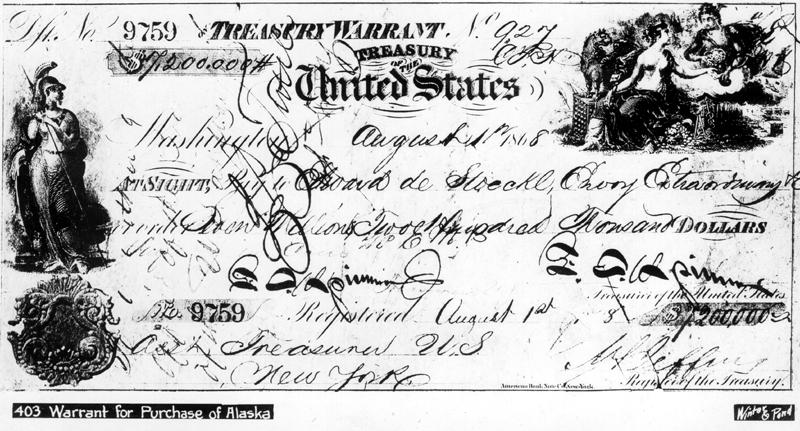 Dft. No. 9759 TREASURY WARRANT. No. 927
$7,200.000
TREASURY
OF THE
United States
Washington, August 1st 1868
AT SIGHT, Pay to Edward de Stoeckl, Envoy Extraordinary &c
Seven Millions Two Hundred Thousand DOLLARS
F. E. Spinner F. E. Spinner
Treasurer of the United States
No. 9759 Registered August 1st $7,200,000
Asst. Treasurer U.S.
New York
Register of the Treasury.
American Bank Note Co. New York.
403 Warrant for Purchase of Alaska
Winter & Pond